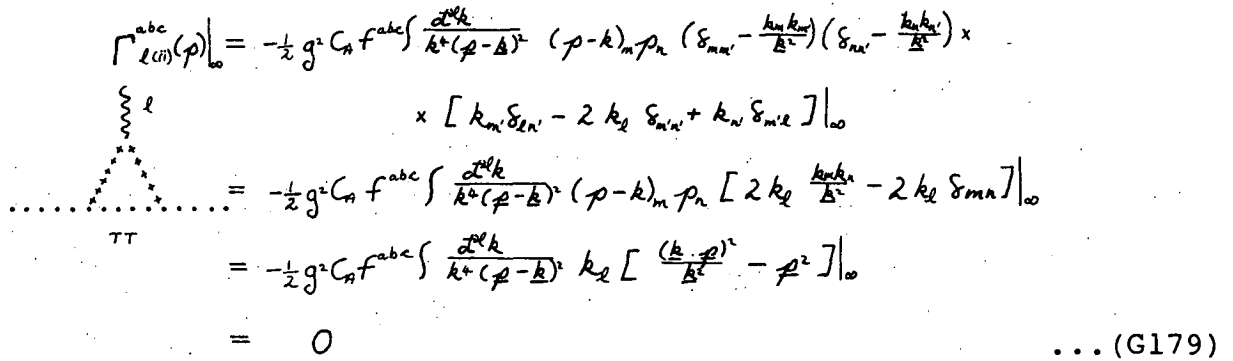 Γ^{abc}_{l(ii)}(p)|_∞ = -½ g² C_A f^{abc} ∫ \frac{d^{2l}k}{k⁴(p-k)²} (p-k)_m p_n (δ_{mm'} - \frac{k_m k_{m'}}{k²})(δ_{nn'} - \frac{k_n k_{n'}}{k²}) ×
× [ k_{m'} δ_{ln'} - 2 k_l δ_{m'n'} + k_{n'} δ_{m'l} ]|_∞
l
= -½ g² C_A f^{abc} ∫ \frac{d^{2l}k}{k⁴(p-k)²} (p-k)_m p_n [ 2 k_l \frac{k_m k_n}{k²} - 2 k_l δ_{mn} ]|_∞
TT
= -½ g² C_A f^{abc} ∫ \frac{d^{2l}k}{k⁴(p-k)²} k_l [ \frac{(k·p)²}{k²} - p² ]|_∞
= 0 ...(G179)